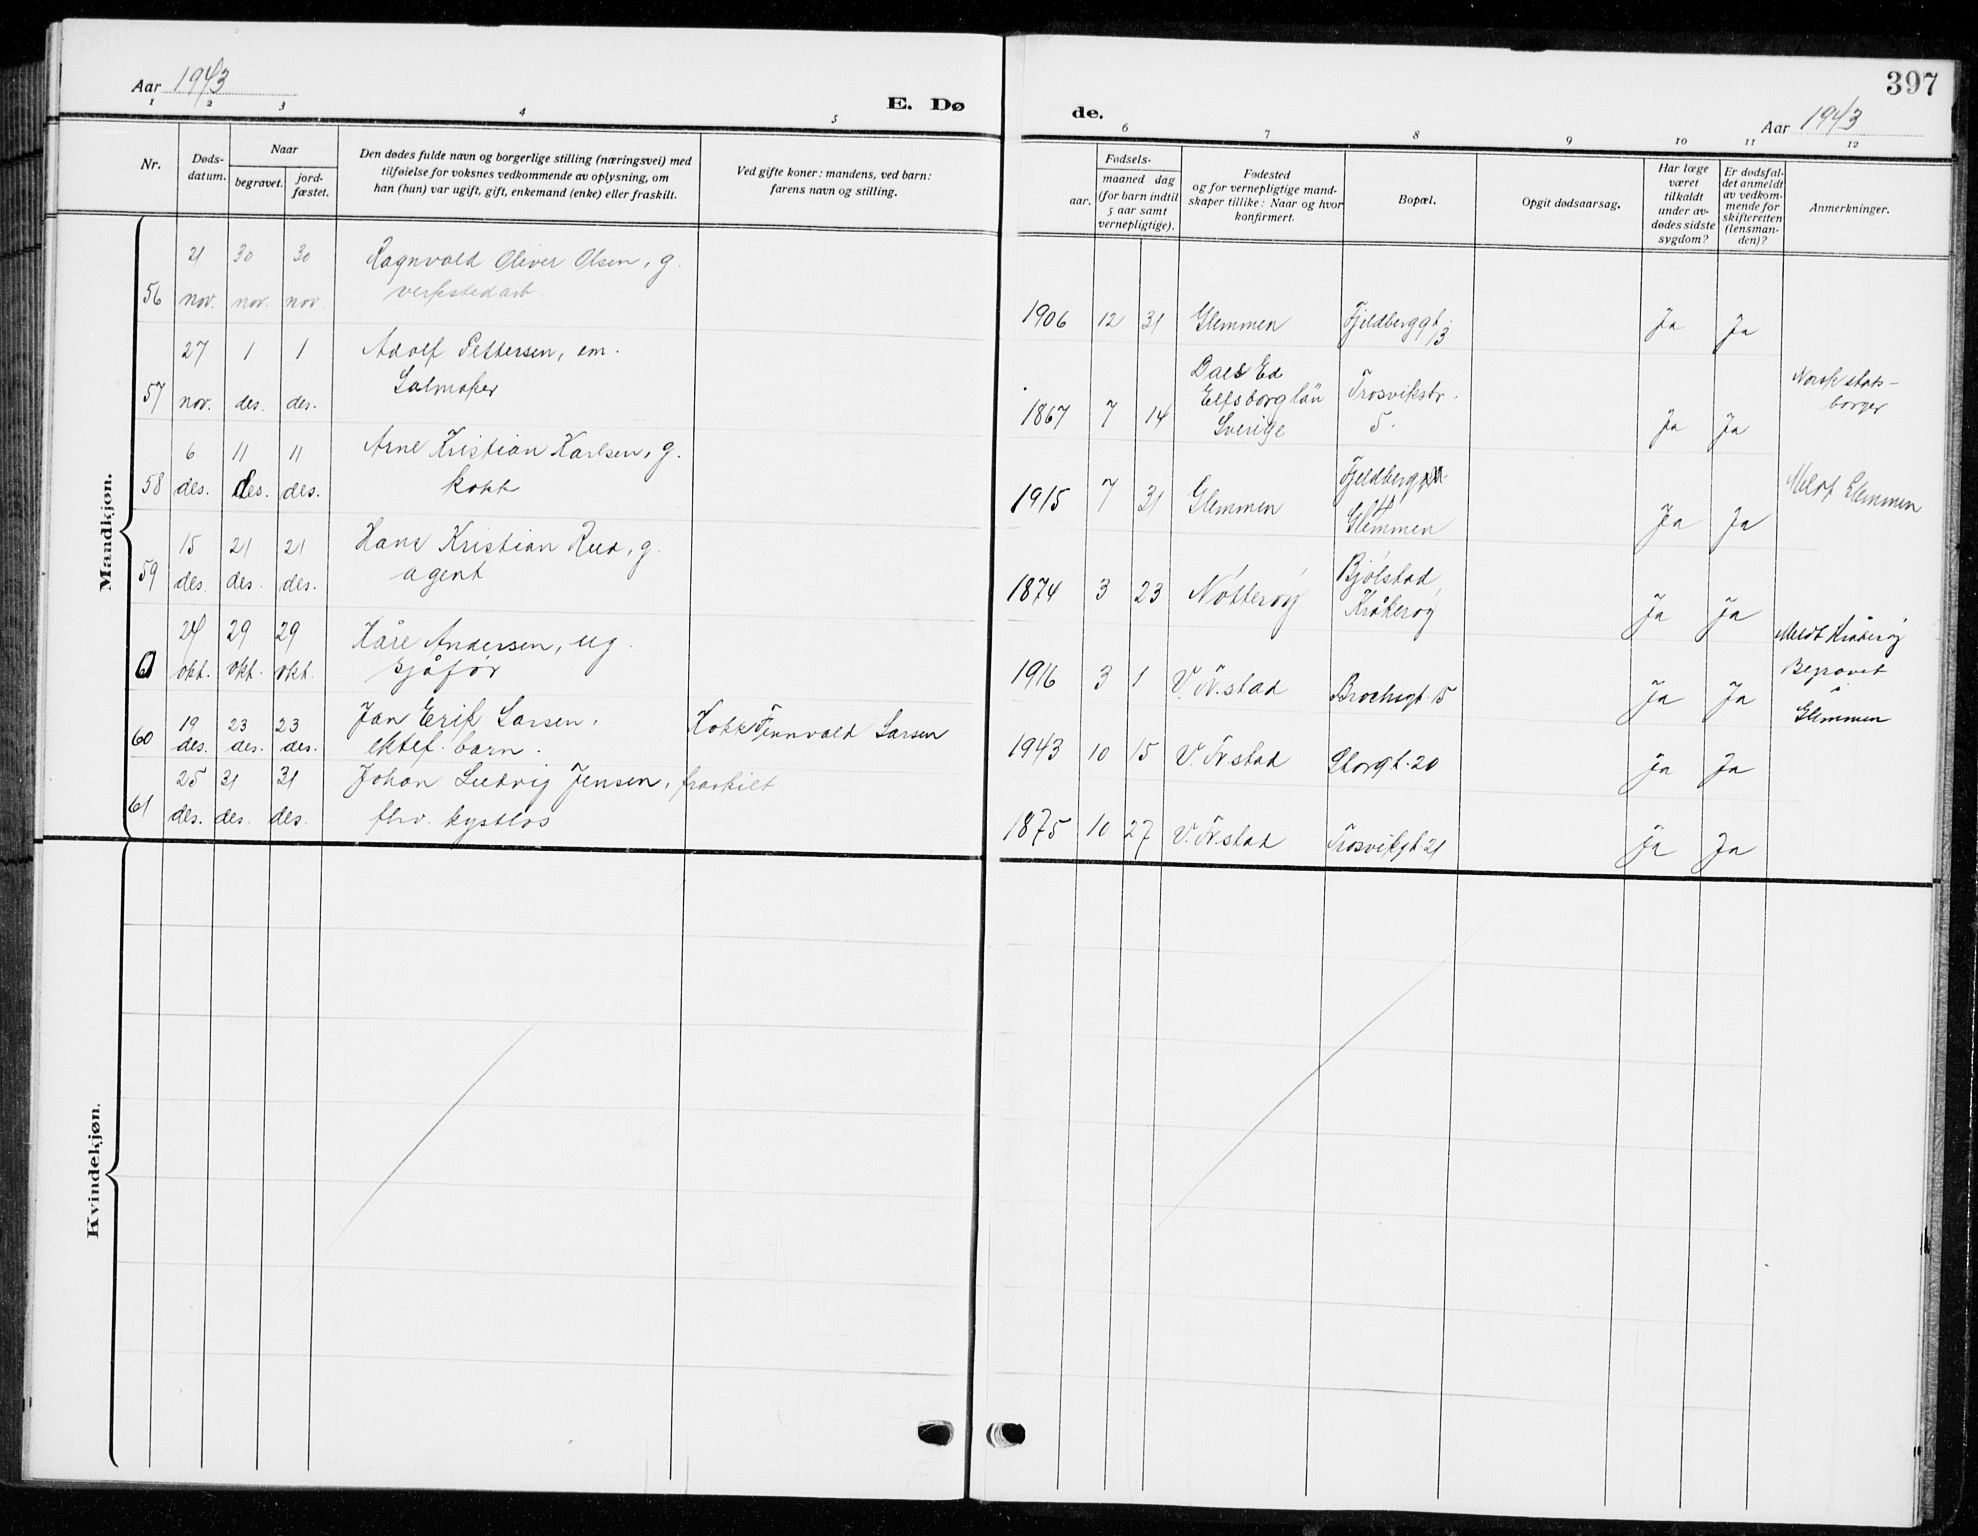 397
Aar 1943
E. Dø
de.
Aar 1943
1 2 3 4 5 6 7 8 9 10 11 12
Nr.
Døds-
datum.
Naar
begravet.
jord-
fæstet.
Den dødes fulde navn og borgerlige stilling (næringsvei) med
tilføielse for voksnes vedkommende av oplysning, om
han (hun) var ugift, gift, enkemand (enke) eller fraskilt.
Ved gifte koner: mandens, ved barn:
farens navn og stilling.
Fødsels-
aar.
maaned dag
(for barn indtil
5 aar samt
vernepligtige).
Fødested
og for vernepligtige mand-
skaper tillike: Naar og hvor
konfirmert.
Bopæl.
Opgit dødsaarsag.
Har læge
været
tilkaldt
under av-
dødes sidste
sygdom?
Er dødsfal-
det anmeldt
av vedkom-
mende for
skifteretten
(lensman-
den)?
Anmerkninger.
Mandkjøn.
21 30 30 Ragnvald Oliver Olsen, g.
56 nov. nov. nov. verkstedarb.
1906 12 31 Glemmen Fjeldberggt. 3 Ja Ja
27 1 1 Adolf Pettersen, em.
57 nov. des. des. Salmaker
1867 7 14 Dals Ed
Elfsborg län
Sverige
Trosvikstr.
5.
Ja Ja
Norsk stats-
borger
6 11 11 Arne Kristian Karlsen, g.
58 des. des. des. kokk
1915 7 31 Glemmen
Glemmen
Ja Ja
Meldt Glemmen
15 21 21 Hans Kristian Rud, g.
59 des. des. des. agent
1874 3 23 Nøtterøy
Bjølstad
Kråkerøy
Ja Ja
Meldt Kråkerøy
24 29 29 Kåre Andersen, ug.
okt. okt. okt. sjåfør
1916 3 1 V. Fr.stad Brochsgt. 15 Ja Ja
Begravet
i
Glemmen
19 23 23 Jan Erik Larsen,
60 des. des. des. ektef. barn.
Kokk Finnvald Larsen
1943 10 15 V. Fr.stad Storgt. 20 Ja Ja
25 31 31 Johan Ludvig Jensen, fraskilt
61 des. des. des. fhv. kystlos
1875 10 27 V. Fr.stad Trosvikgt. 21 Ja Ja
Kvindekjøn.